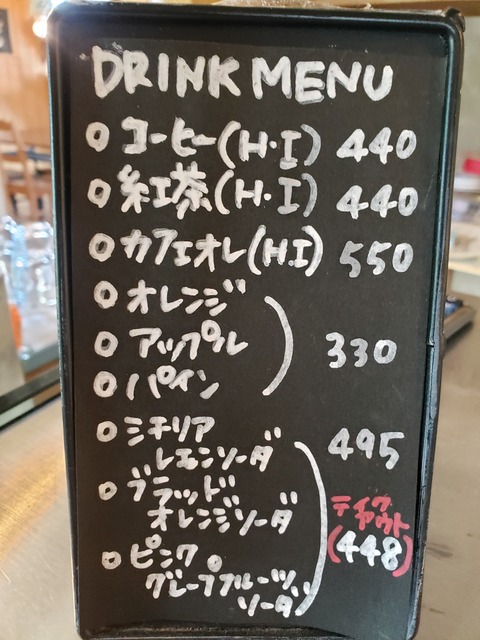 DRINK MENU
○ コーヒー(H・I) 440
○ 紅茶(H・I) 440
○ カフェオレ(H.I) 550
○ オレンジ
○ アップル 330
○ パイン
○ シチリア
レモンソーダ 495
○ ブラッド
オレンジソーダ
テイク
アウト
(448)
○ ピンク
グレープフルーツ
ソーダ